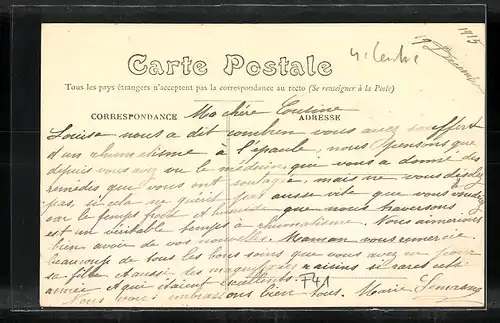 1915
19 Décembre
Carte Postale
Tous les pays étrangers n'acceptent pas la correspondance au recto (Se renseigner à la Poste)
CORRESPONDANCE
ADRESSE
Ma chère Cousine
Louise nous a dit combien vous avez souffert
d'un rhumatisme à l'épaule, nous pensons que
depuis vous avez vu le médecin qui vous a donné des
remèdes que vous ont soulagée, mais ne vous désolez
pas, si cela ne guérit pas aussi vite que vous voudriez
car le temps froid et humide que nous traversons
est un véritable temps à rhumatisme. Nous aimerions
bien avoir de vos nouvelles. Maman vous remercie
beaucoup de tous les bons soins que vous avez eu pour
sa fille et aussi des magnifiques raisins si rares cette
année et qui étaient excellents.
Nous vous embrassons bien tous. Marie
F41